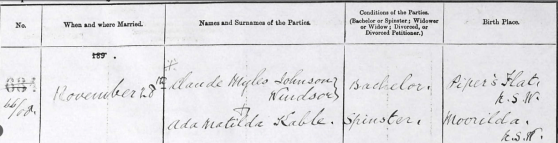 No.
When and where Married.
Names and Surnames of the Parties.
Conditions of the Parties.
(Bachelor or Spinster; Widower
or Widow; Divorced, or
Divorced Petitioner.)
Birth Place.
189 .
684
66/08.
November 28th
Claude Myles Johnson
Windsor
Bachelor.
Piper's Flat,
N.S.W.
&
Ada Matilda Kable.
Spinster.
Moorilda.
N.S.W.